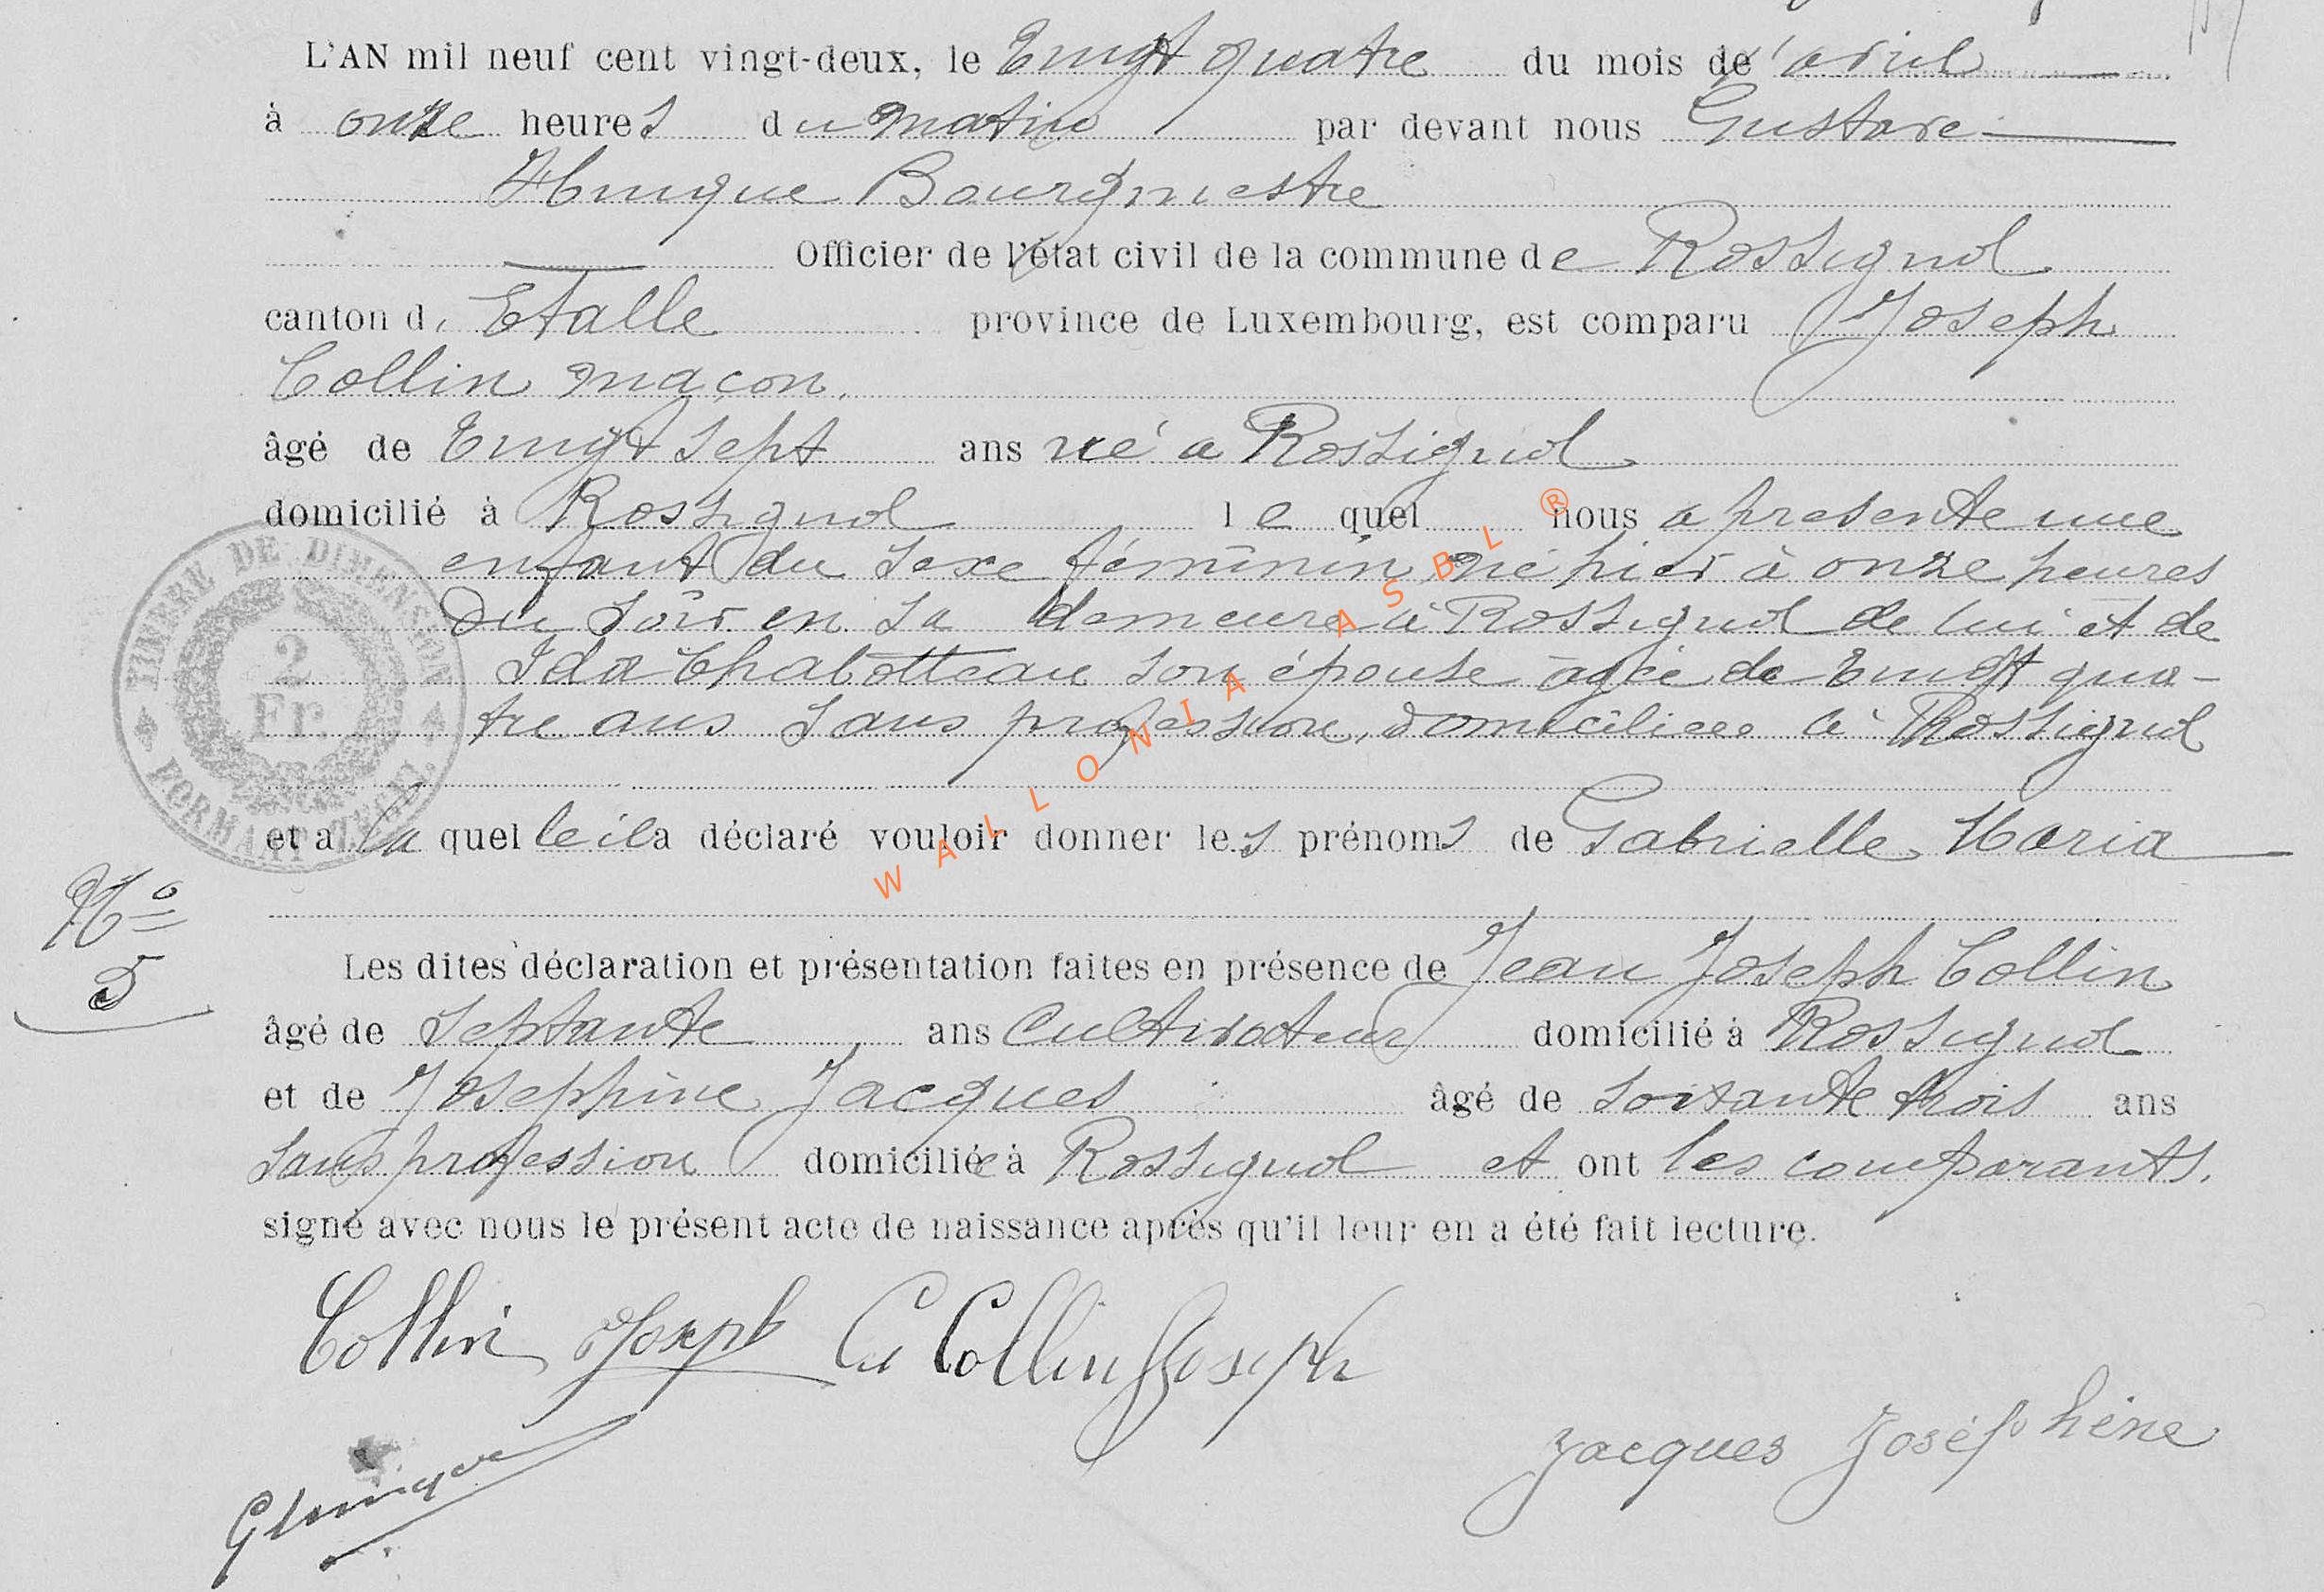 L'AN mil neuf cent vingt-deux, le Vingt quatre du mois de'avril
à onze heures du matin par devant nous Gustave
Hurique Bourgmestre
Officier de l'état civil de la commune de Rossignol
canton d. Etalle province de Luxembourg, est comparu Joseph
Collin maçon.
âgé de Vingt sept ans né a Rossignol
domicilié à Rossignol le quel nous a presente une
enfant du sexe féminin, né hier à onze heures
Du soir en sa demeure à Rossignol de lui et de
Ida Chalotteau son épouse âgée de Vingt qua-
tre ans sans profession, domiciliee à Rossignol
et a la quel le il a déclaré vouloir donner les prénoms de Gabrielle, Maria
Nº
5
Les dites déclaration et présentation faites en présence de Jean Joseph Collin
âgé de septante ans Cultivateur domicilié à Rossignol
et de Josephine Jacques âgé de soixante trois ans
sans profession domiciliée à Rossignol et ont les comparants.
signé avec nous le présent acte de naissance après qu'il leur en a été fait lecture.
Collin Joseph Collin Joseph
Jacques Joséphine
TIMBRE DE DIMENSION
2
Fr.
WALLONIA ASBL ®